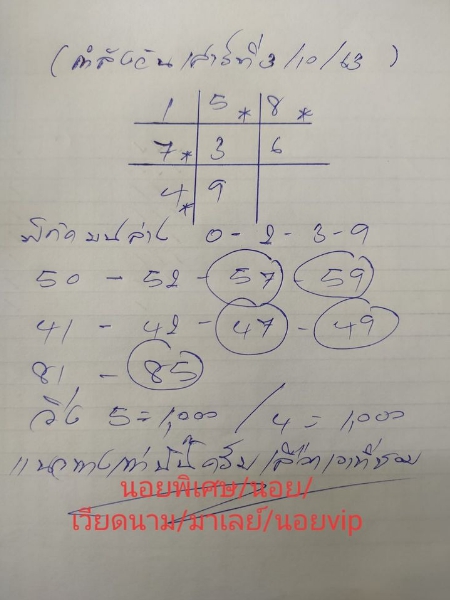 (กำลังวันเสาร์ที่ 3/10/63)
1 5* 8*
7* 3 6
4* 9
พิกัดบนล่าง 0-2-3-9
50 - 52 - 57 - 59
41 - 42 - 47 - 49
81 - 85
วิ่ง 5=1,000 / 4=1,000
แนวทางเท่านั้นครับเลือกเอาที่ชอบ
นอยพิเศษ/นอย/
เวียดนาม/มาเลย์/นอยvip